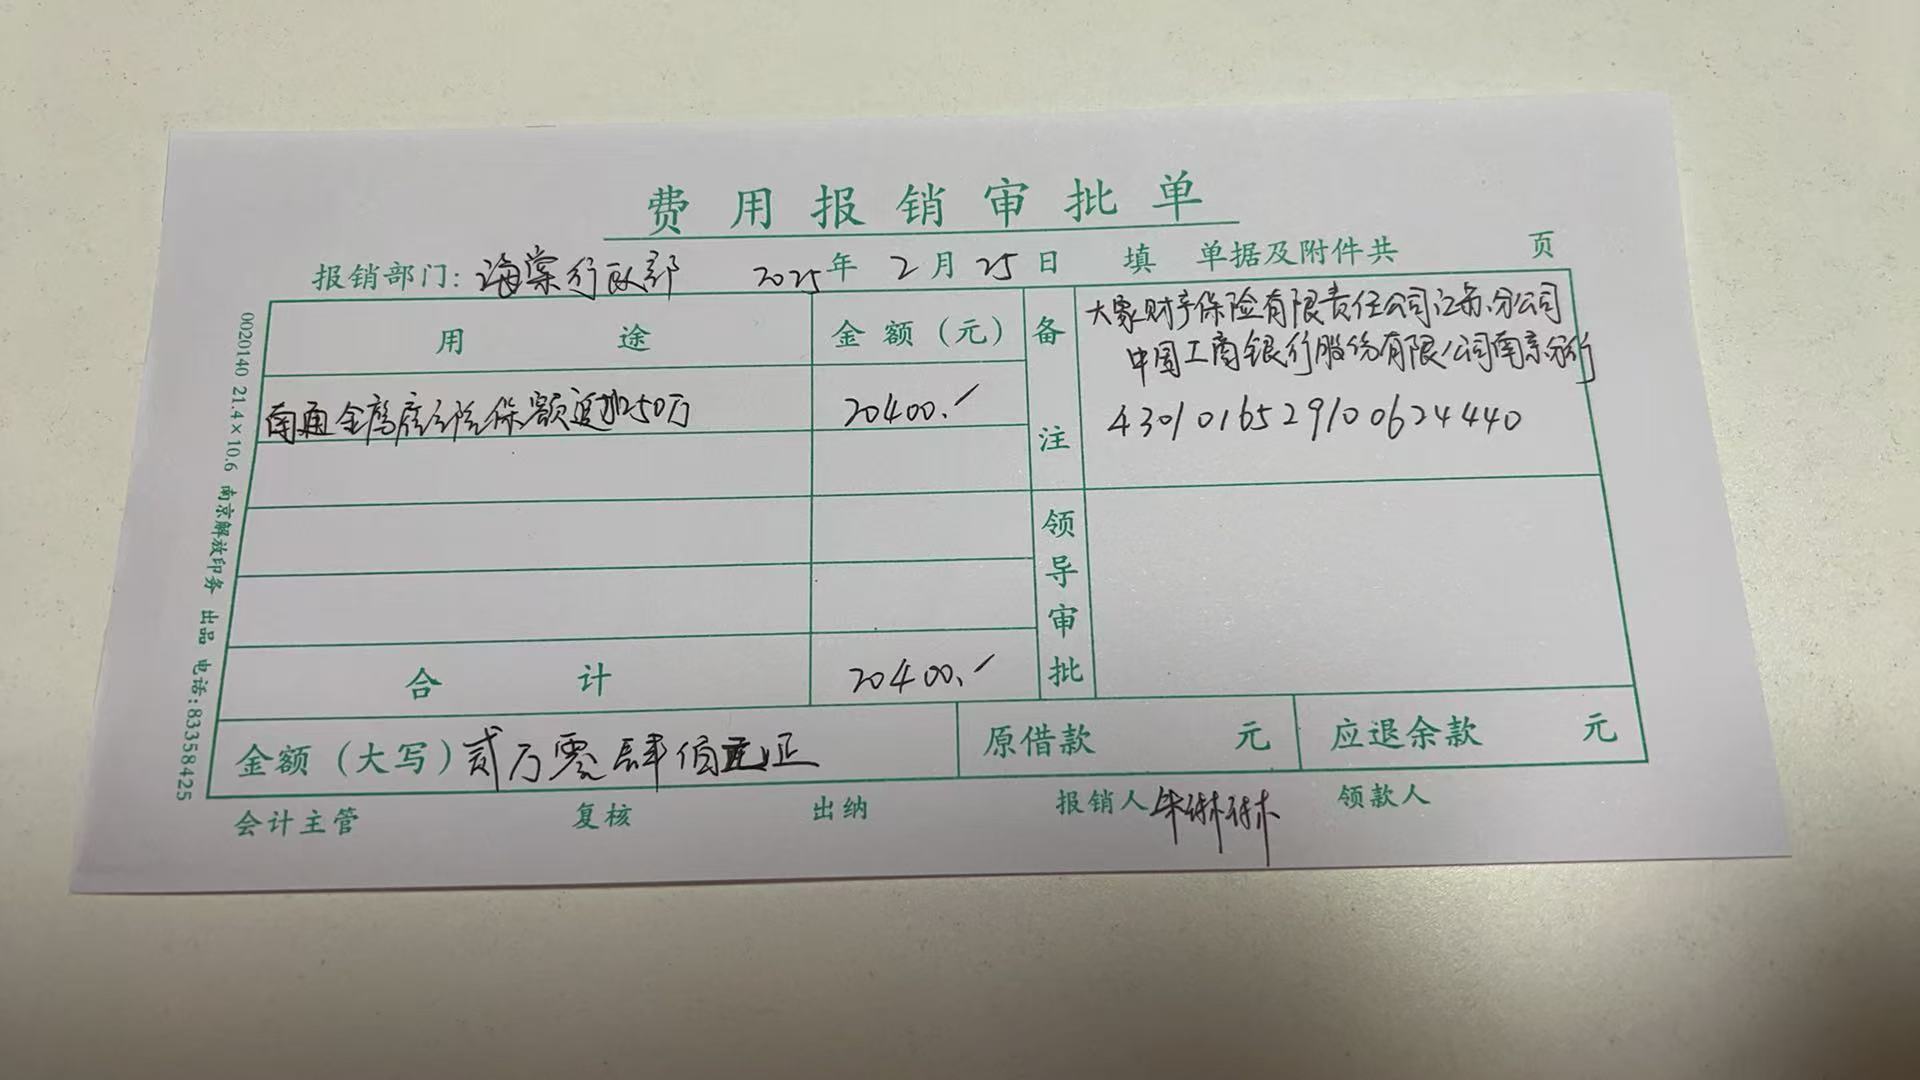 费用报销审批单
报销部门: 海棠行政部 2025年 2月 25日 填 单据及附件共 页
用途 金额（元） 备注
大家财产保险有限责任公司江苏分公司
中国工商银行股份有限公司南京分行
4301016529100624440
南通金鹰 险保额追加250万 20400.
领导审批
合计 20400.
金额（大写）贰万零肆佰元正 原借款 元 应退余款 元
会计主管 复核 出纳 报销人 领款人
0020140 21.4×10.6 南京解放印务 出品 电话:83358425